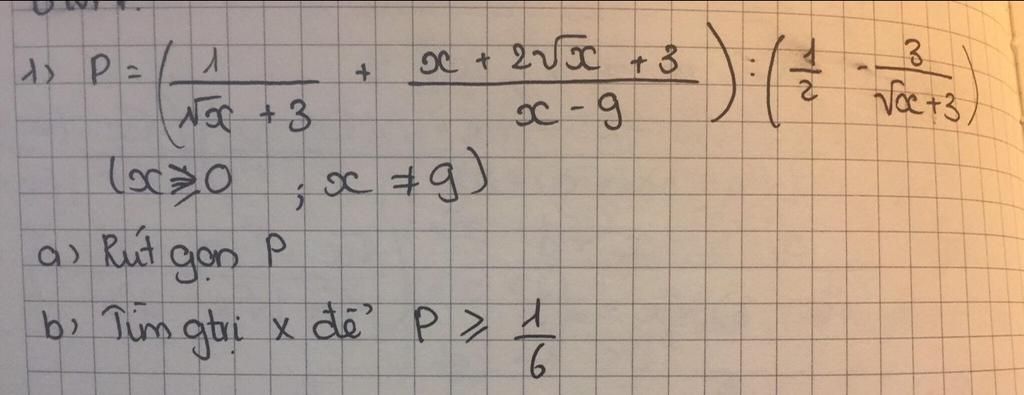 1) P = ( 1/(√x + 3) + (x + 2√x + 3)/(x - 9) ) : ( 1/2 - 3/(√x+3) )
(x ≥ 0 ; x ≠ 9)
a) Rút gọn P
b) Tìm gtrị x để P ≥ 1/6